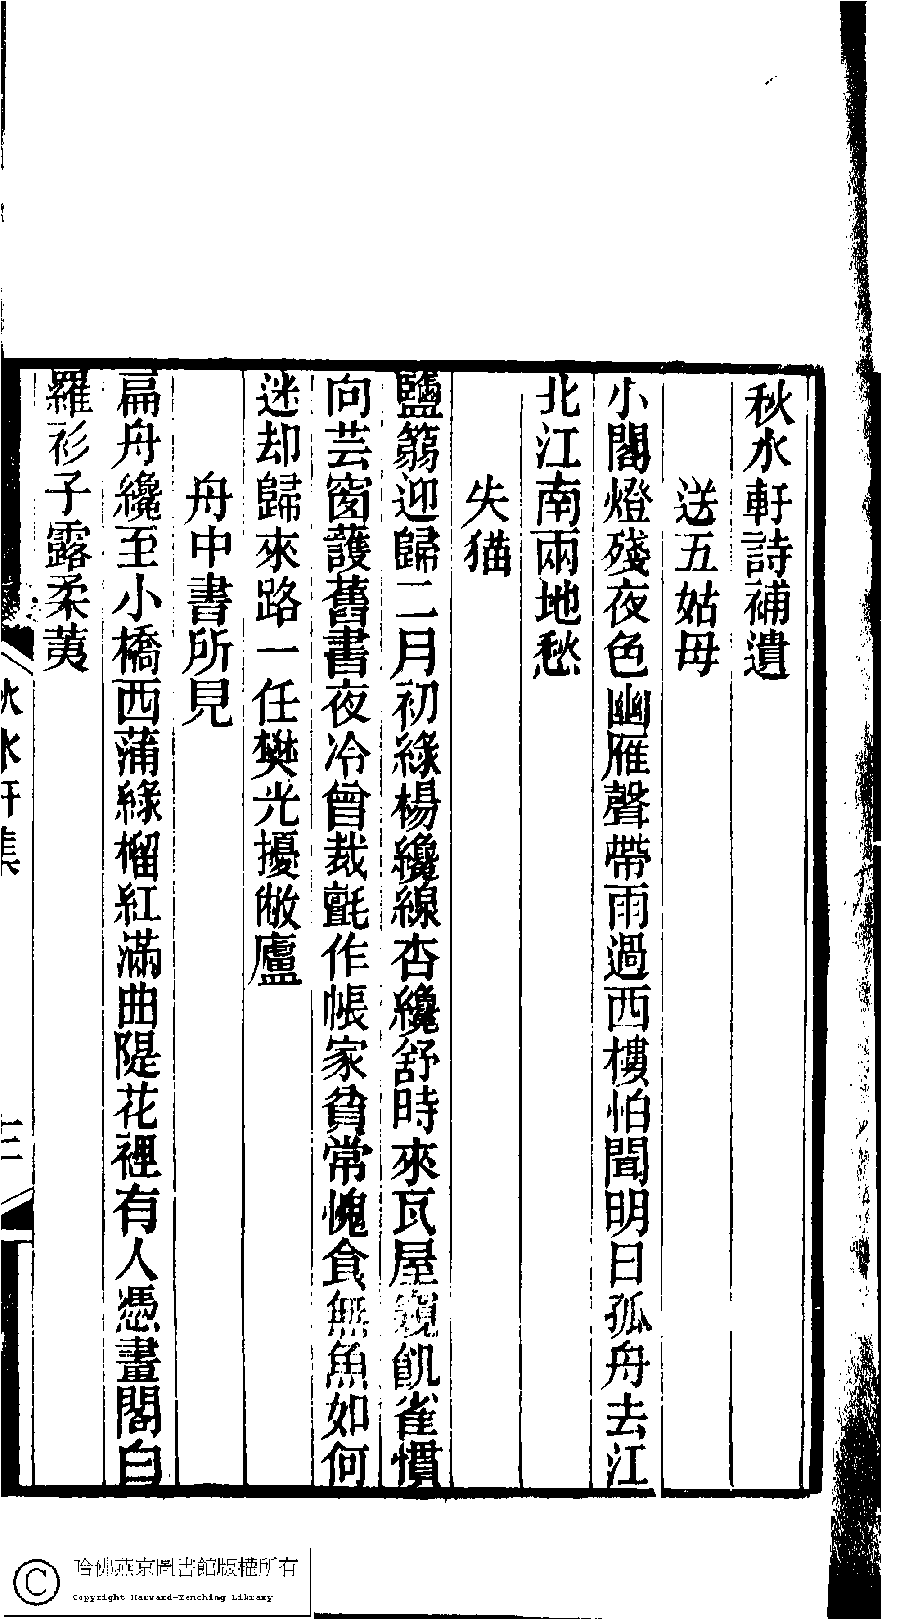 秋水軒詩補遺
送五姑母
小閣燈殘夜色幽雁聲帶雨過西樓怕聞明日孤舟去江
北江南兩地愁
失猫
鹽篛迎歸二月初綠楊纔線杏纔舒時來瓦屋窺飢雀慣
向芸窗護舊書夜冷曾裁氈作帳家貧常愧食無魚如何
迷却歸來路一任樊光擾敝廬
舟中書所見
扁舟纔至小橋西蒲綠榴紅滿曲隄花裡有人憑畫閣白
羅衫子露柔荑
秋水軒集
三
哈佛燕京圖書館版權所有
Copyright Harvard-Yenching Library